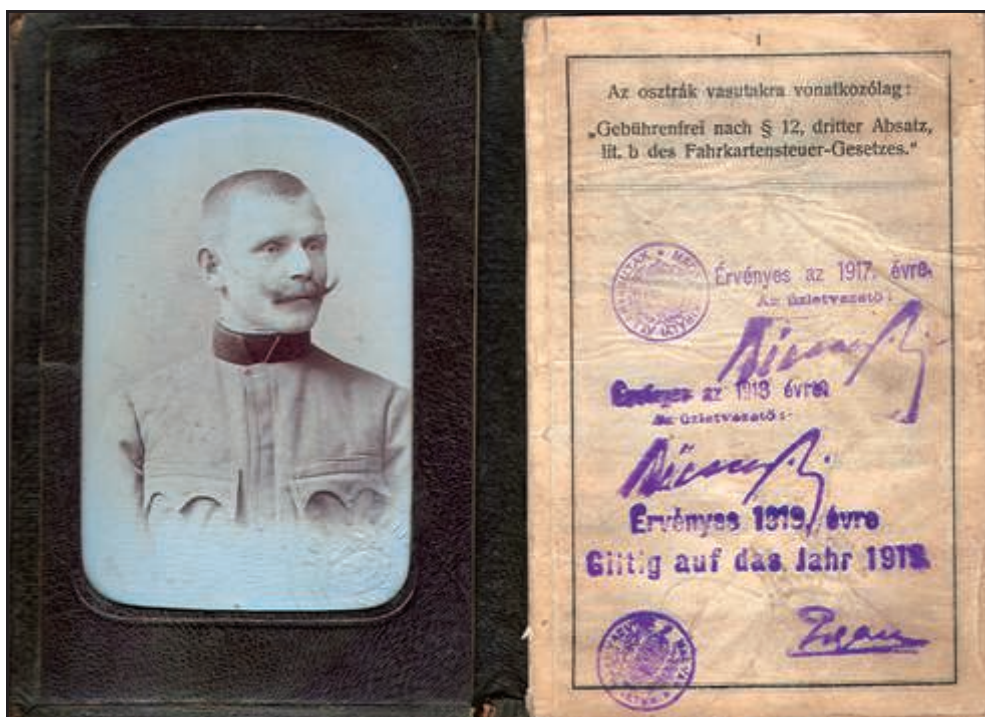 1
Az osztrák vasutakra vonatkozólag:
„Gebührenfrei nach § 12, dritter Absatz,
lit. b des Fahrkartensteuer-Gesetzes.“
Érvényes az 1917. évre.
Az üzletvezető:
az 1918 évre.
Az üzletvezető:
Érvényes 1919. évre
Giltig auf das Jahr 1919.